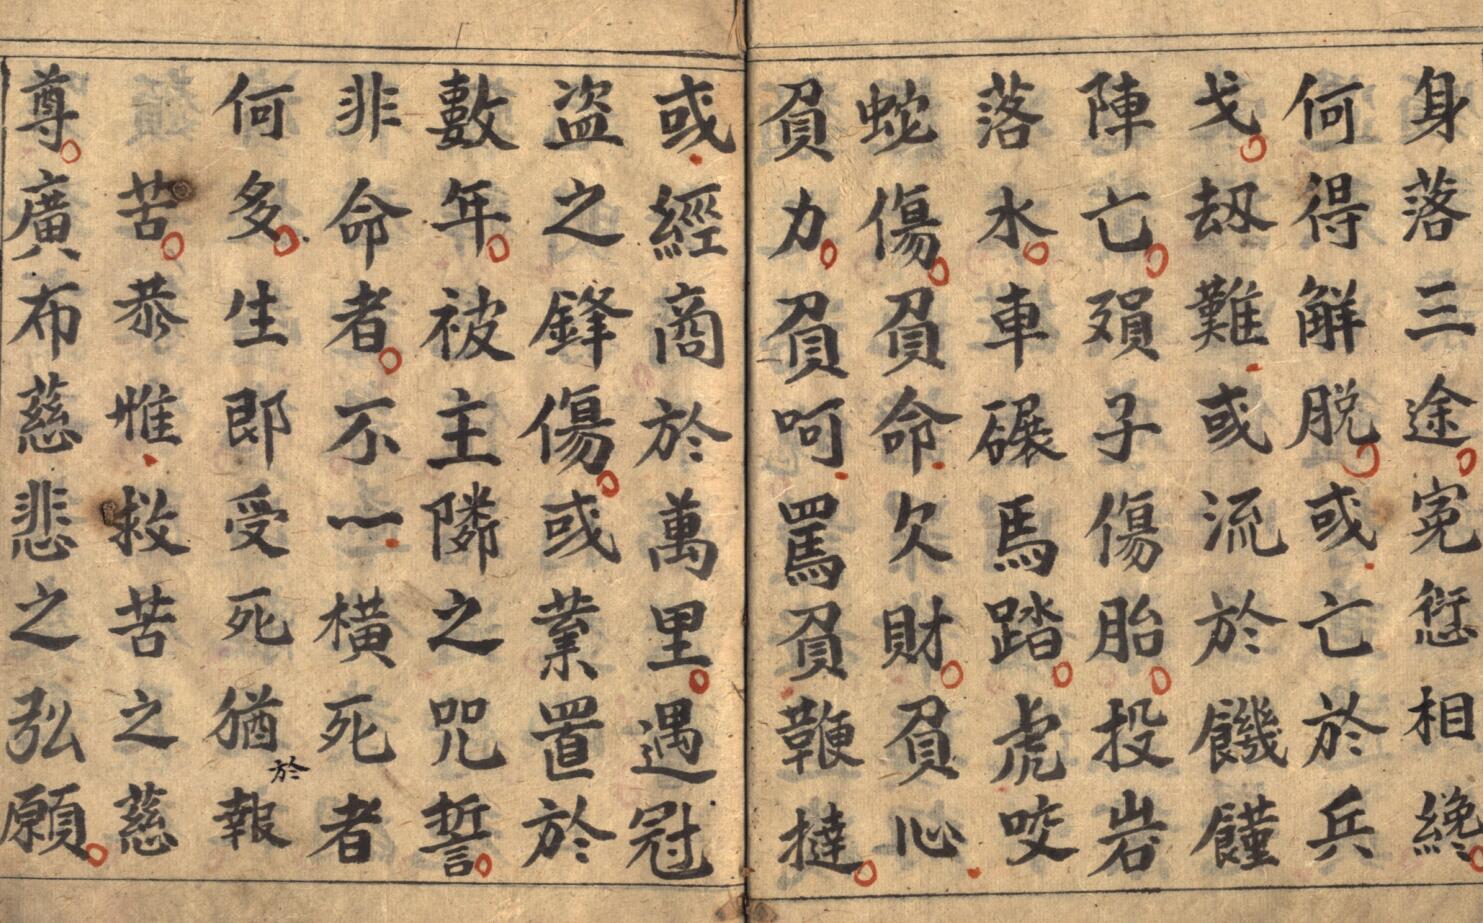 身落三途寃愆相纔
何得解脫或亡於兵
戈刼難或流於饑饉
陣亡殞子傷胎投岩
落水車碾馬踏虎咬
蛇傷負命欠財負心
負力負呵罵負鞭撻
或經商於萬里遇冦
盗之鋒傷或業置於
數年被主隣之咒誓
非命者不一橫死者
何多生即受死猶於報
苦恭惟救苦之慈
尊廣布慈悲之弘願